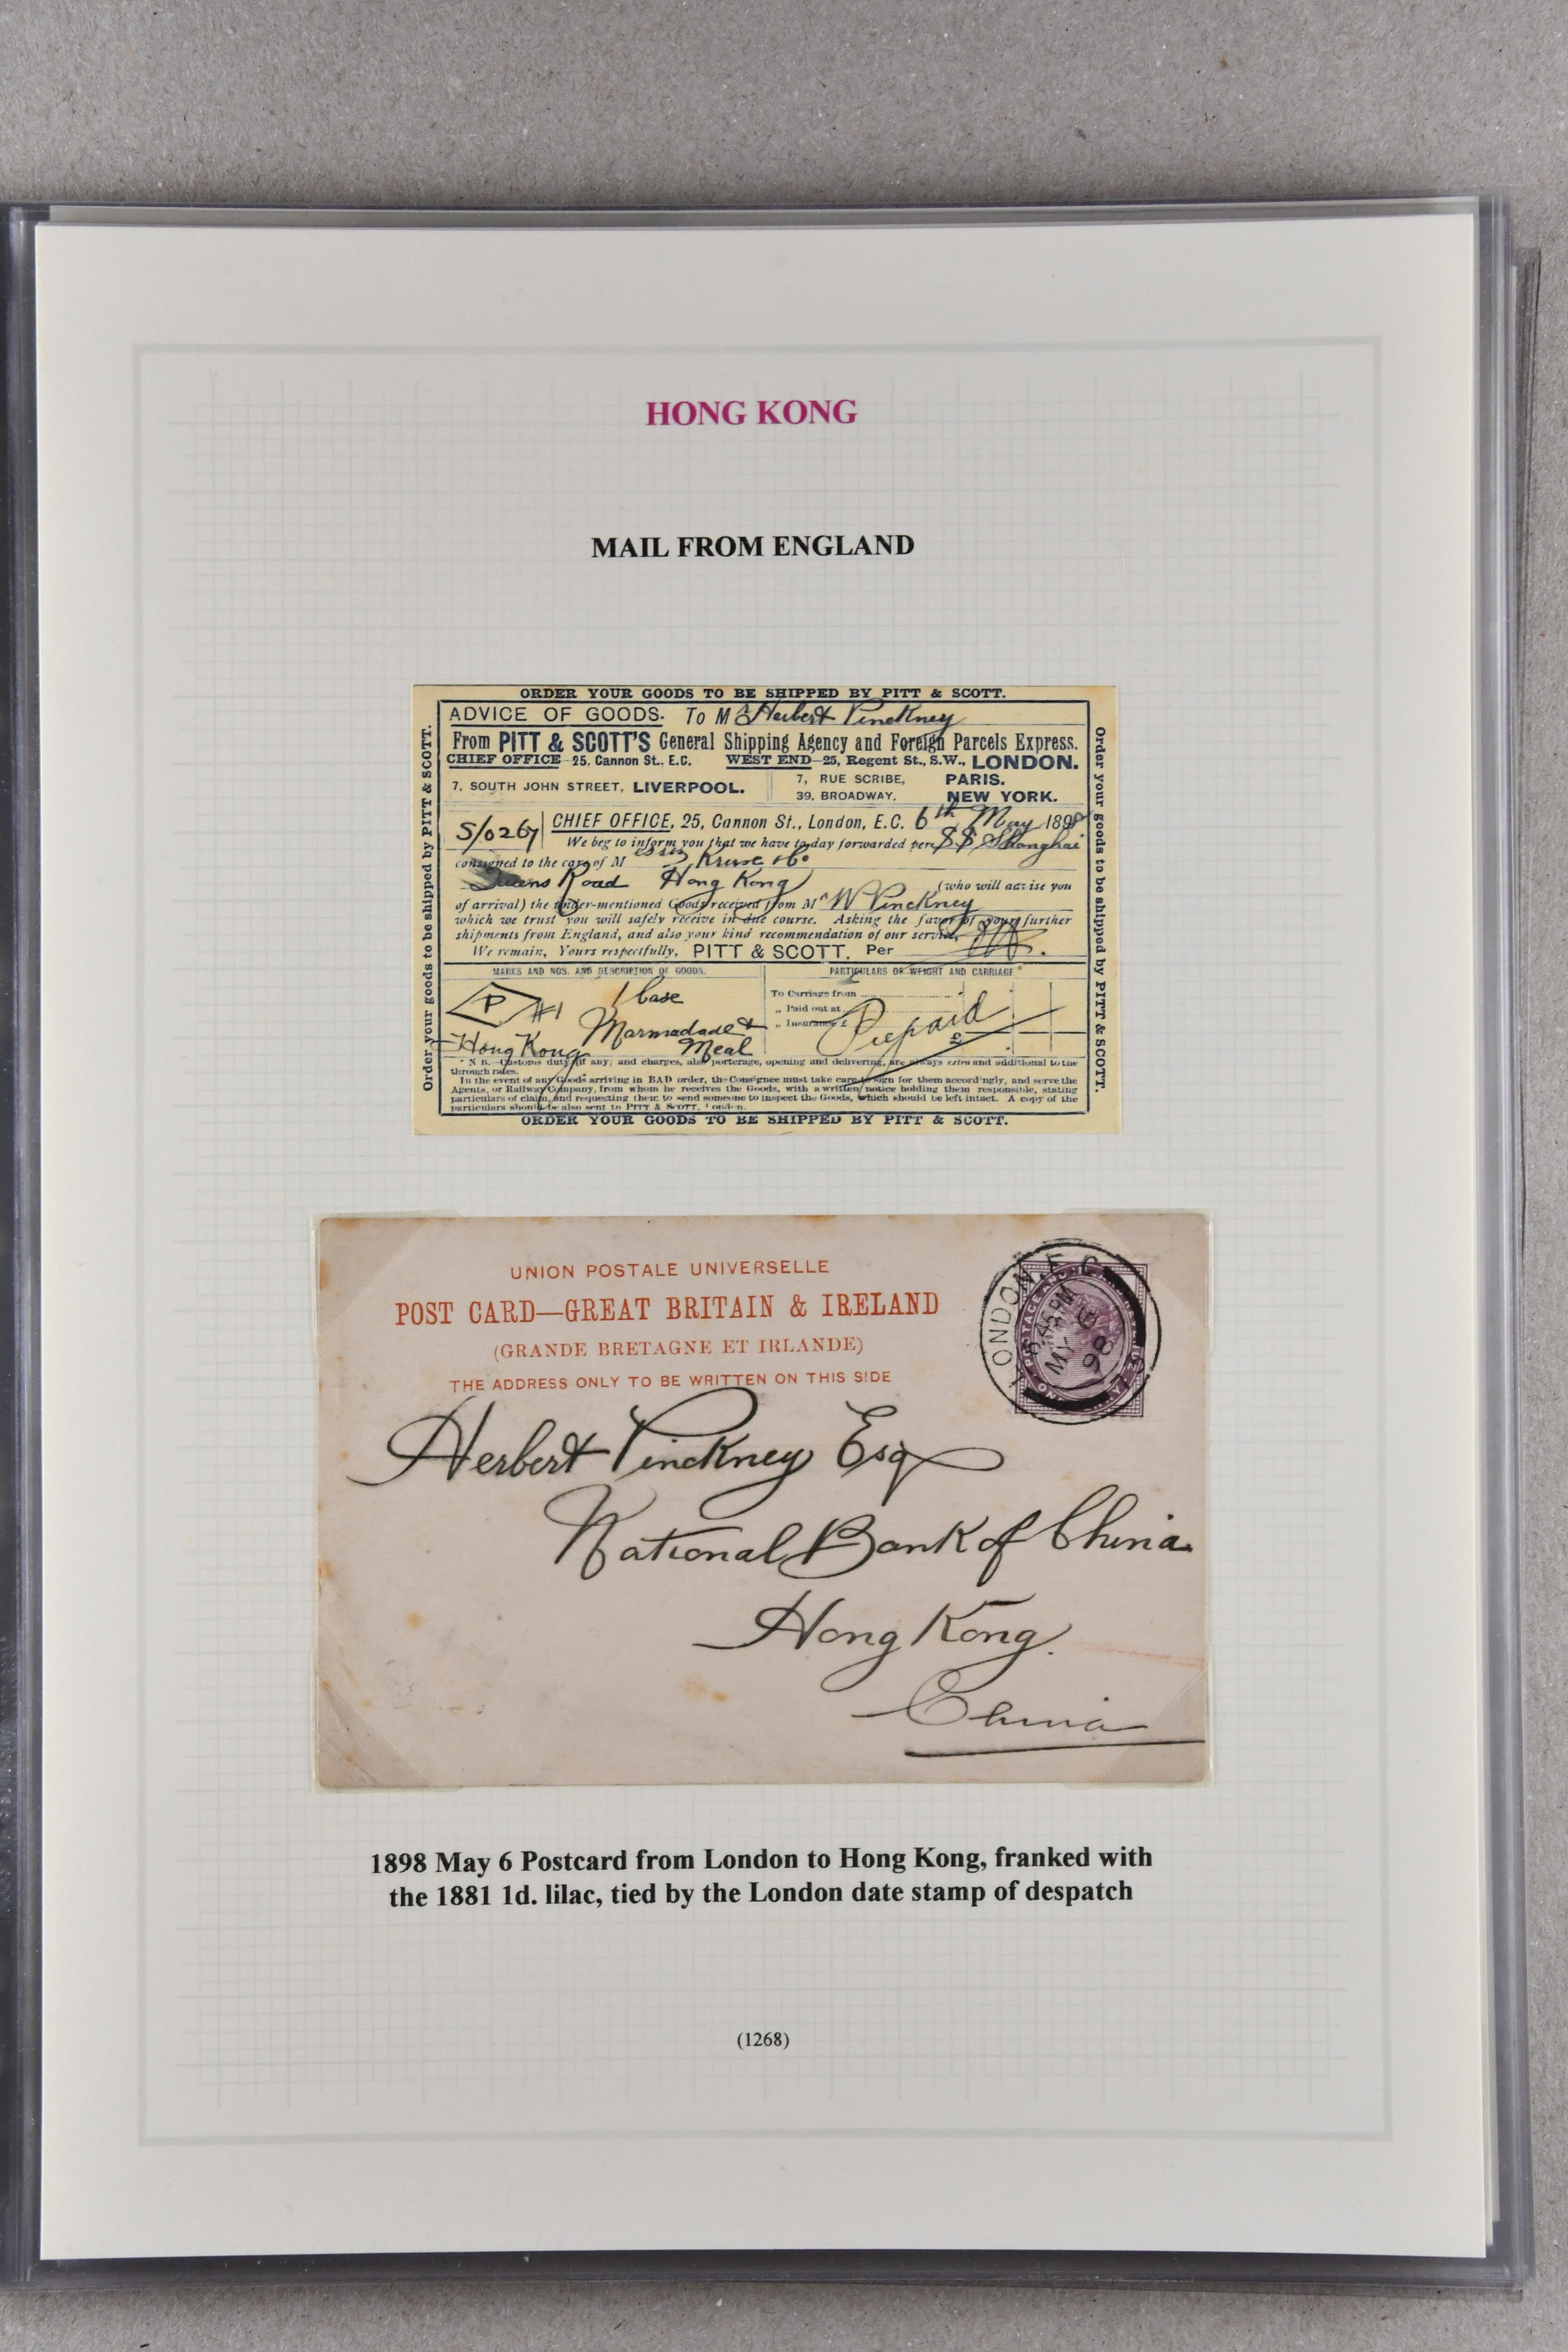 HONG KONG
MAIL FROM ENGLAND
ORDER YOUR GOODS TO BE SHIPPED BY PITT & SCOTT.
Order your goods to be shipped by PITT & SCOTT.
Order your goods to be shipped by PITT & SCOTT.
ADVICE OF GOODS. To Mr Herbert Pinckney
From PITT & SCOTT'S General Shipping Agency and Foreign Parcels Express.
CHIEF OFFICE—25, Cannon St., E.C. WEST END—25, Regent St., S.W., LONDON.
7, SOUTH JOHN STREET, LIVERPOOL. 7, RUE SCRIBE, PARIS.
39, BROADWAY, NEW YORK.
S/0267 CHIEF OFFICE, 25, Cannon St., London, E.C. 6th May 1898
We beg to inform you that we have to-day forwarded per SS Shanghai
consigned to the care of Messrs Kruse & Co
Queens Road Hong Kong (who will advise you
of arrival) the under-mentioned Goods received from Mr W Pinckney
which we trust you will safely receive in due course. Asking the favor of your further
shipments from England, and also your kind recommendation of our service,
We remain, Yours respectfully, PITT & SCOTT. Per
MARKS AND NOS. AND DESCRIPTION OF GOODS. PARTICULARS OF WEIGHT AND CARRIAGE*
P #1 1 Case To Carriage from
Marmadade & „ Paid out at
Hong Kong Meal „ Insurance £ Prepaid £
* N.B.—Customs duty (if any) and charges, also porterage, opening and delivering, are always extra and additional to the
through rates.
In the event of any Goods arriving in BAD order, the Consignee must take care to sign for them accordingly, and serve the
Agents, or Railway Company, from whom he receives the Goods, with a written notice holding them responsible, stating
particulars of claim, and requesting them to send someone to inspect the Goods, which should be left intact. A copy of the
particulars should be also sent to PITT & SCOTT, London.
ORDER YOUR GOODS TO BE SHIPPED BY PITT & SCOTT.
UNION POSTALE UNIVERSELLE
POST CARD—GREAT BRITAIN & IRELAND
(GRANDE BRETAGNE ET IRLANDE)
THE ADDRESS ONLY TO BE WRITTEN ON THIS SIDE
LONDON E.C.
5.45 PM
MY 6
98
Herbert Pinckney Esq
National Bank of China.
Hong Kong.
China
1898 May 6 Postcard from London to Hong Kong, franked with
the 1881 1d. lilac, tied by the London date stamp of despatch
(1268)